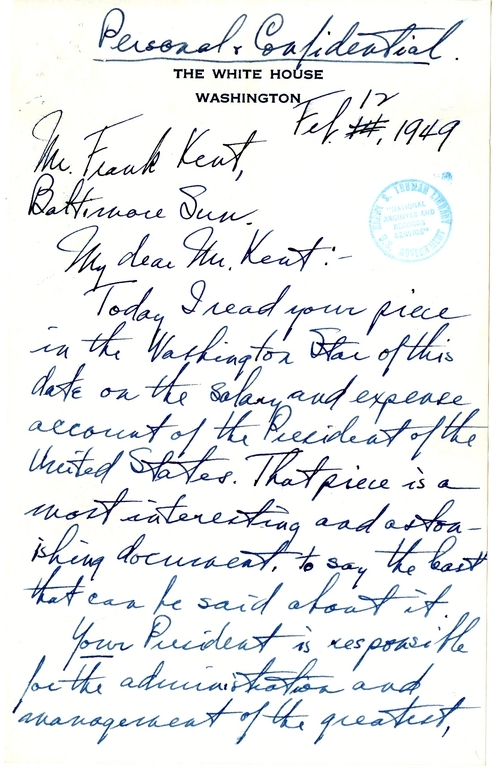 Personal & Confidential.
THE WHITE HOUSE
WASHINGTON
Feb. 12, 1949
Mr. Frank Kent,
Baltimore Sun.
My dear Mr. Kent:-
Today I read your piece
in the Washington Star of this
date on the salary and expense
account of the President of the
United States. That piece is a
most interesting and aston-
ishing document, to say the least
that can be said about it.
Your President is responsible
for the administration and
management of the greatest,
HARRY S. TRUMAN LIBRARY
"NATIONAL
ARCHIVES AND
RECORDS
SERVICE"